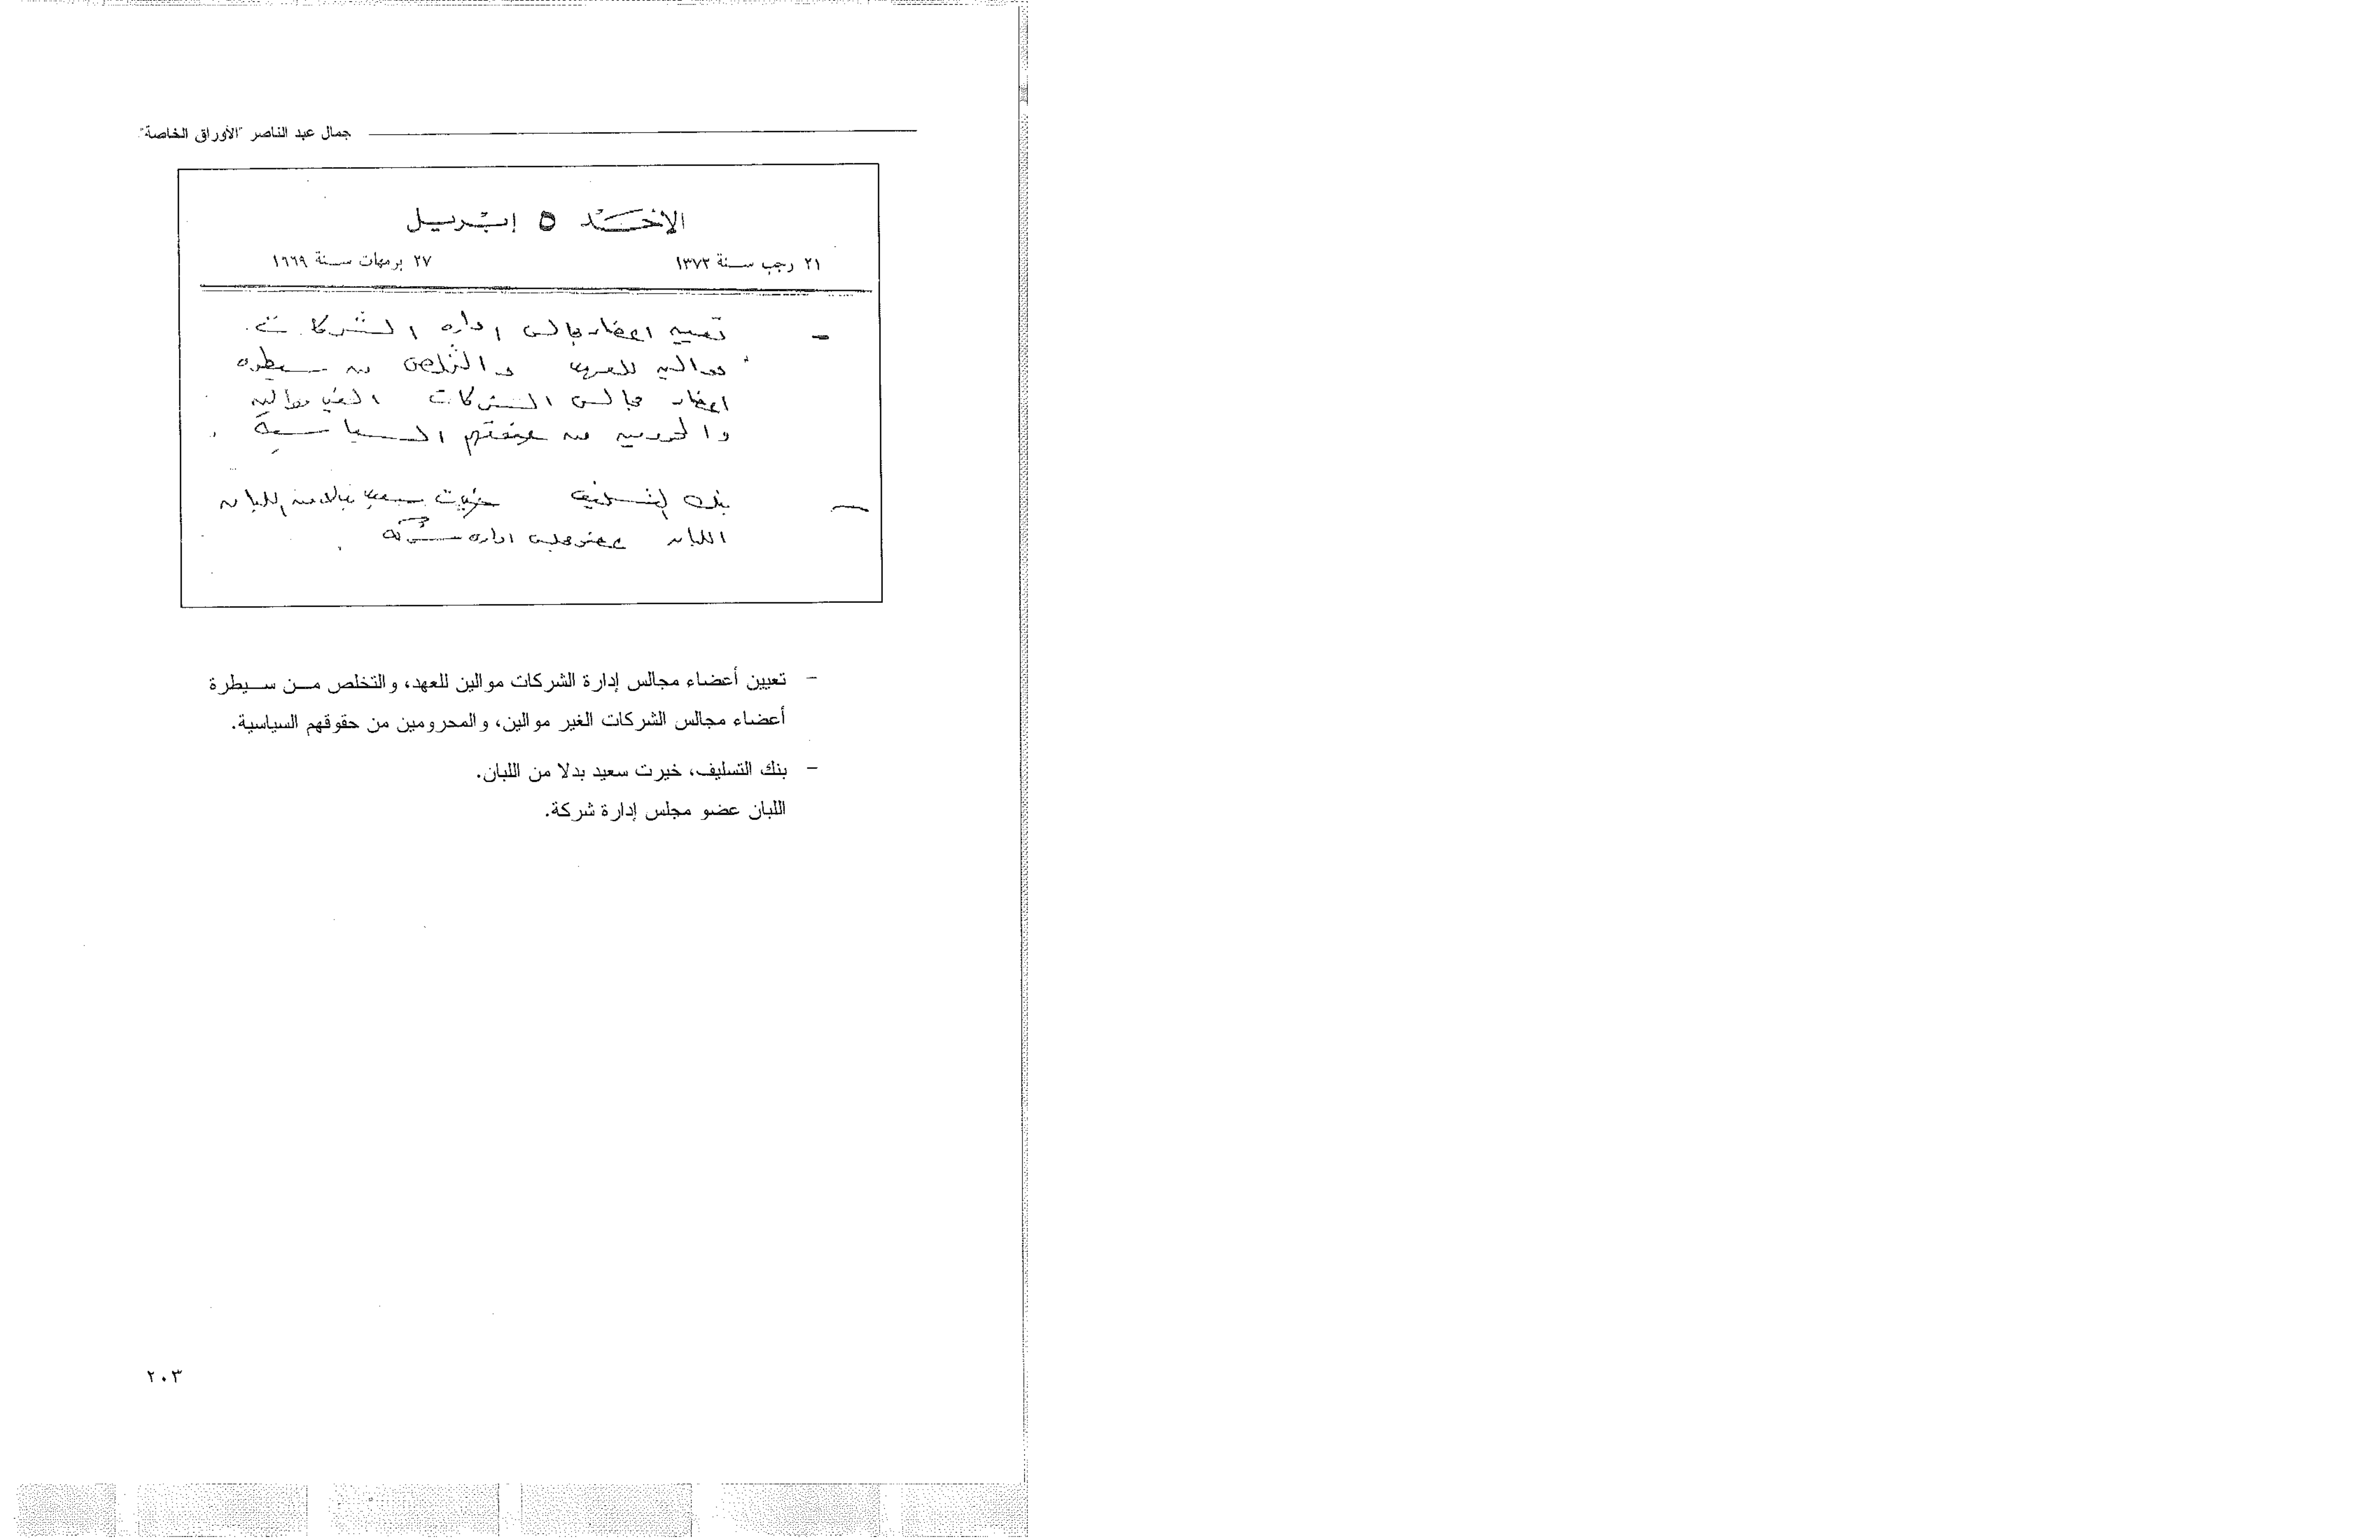 جمال عبد الناصر "الأوراق الخاصة"
الأحد ٥ إبريل
٢١ رجب سنة ١٣٧٢
٢٧ برمهات سنة ١٦٦٩
- تعيين اعضاء مجالس اداره الشركات
موالين للعهد والتخلص من سيطره
اعضاء مجالس الشركات الغير موالين
والمحرومين من حقوقهم السياسية
- بنك التسليف خيرت سعيد بدلا من اللبان
اللبان عضو مجلس اداره شركه
- تعيين أعضاء مجالس إدارة الشركات موالين للعهد، والتخلص مـــن ســـيطرة
أعضاء مجالس الشركات الغير موالين، والمحرومين من حقوقهم السياسية.
- بنك التسليف، خيرت سعيد بدلا من اللبان.
اللبان عضو مجلس إدارة شركة.
٢٠٣